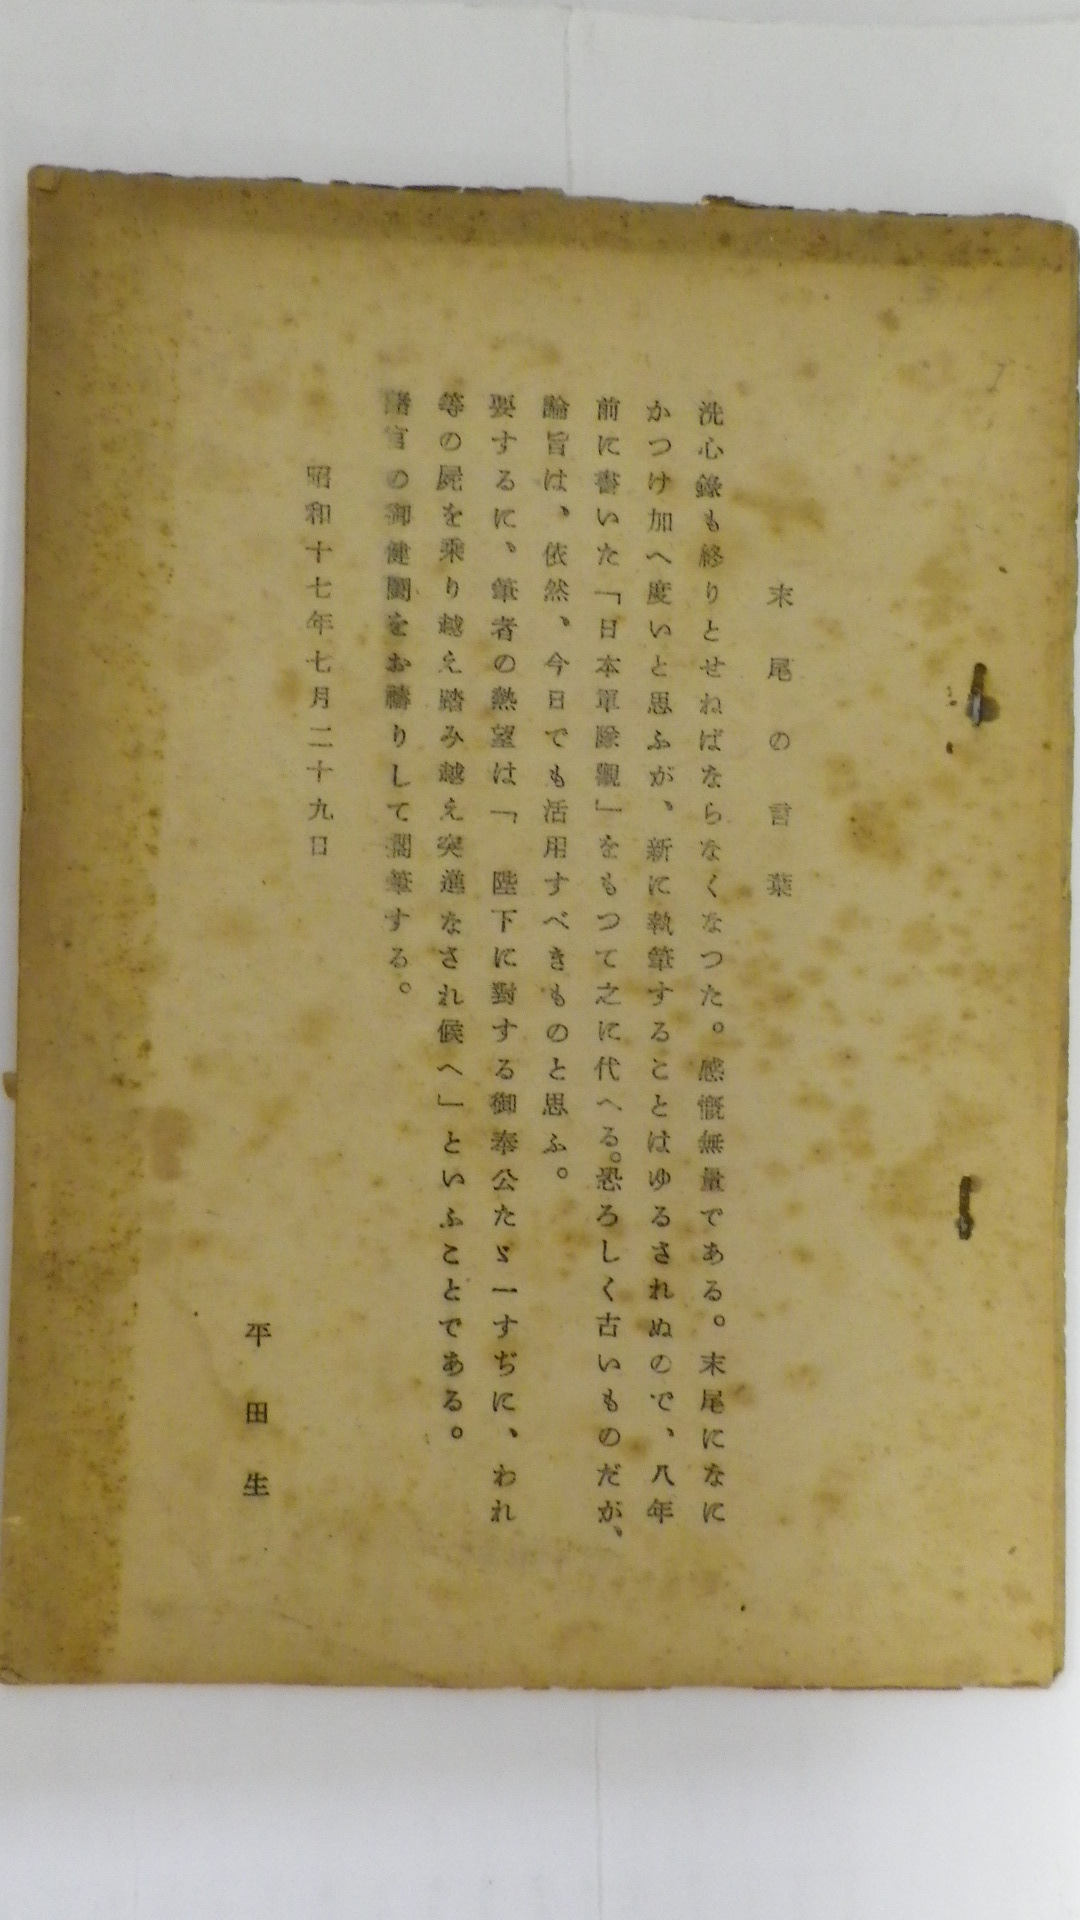 末尾の言葉
洗心錄も終りとせねばならなくなつた。感慨無量である。末尾になに
かつけ加へ度いと思ふが、新に執筆することはゆるされぬので、八年
前に書いた「日本軍隊觀」をもつて之に代へる。恐ろしく古いものだが、
論旨は、依然、今日でも活用すべきものと思ふ。
要するに、筆者の熱望は「　陛下に對する御奉公たゞ一すぢに、われ
等の屍を乗り越え踏み越え突進なされ候へ」といふことである。
諸官の御健鬪をお禱りして擱筆する。
昭和十七年七月二十九日
平田生